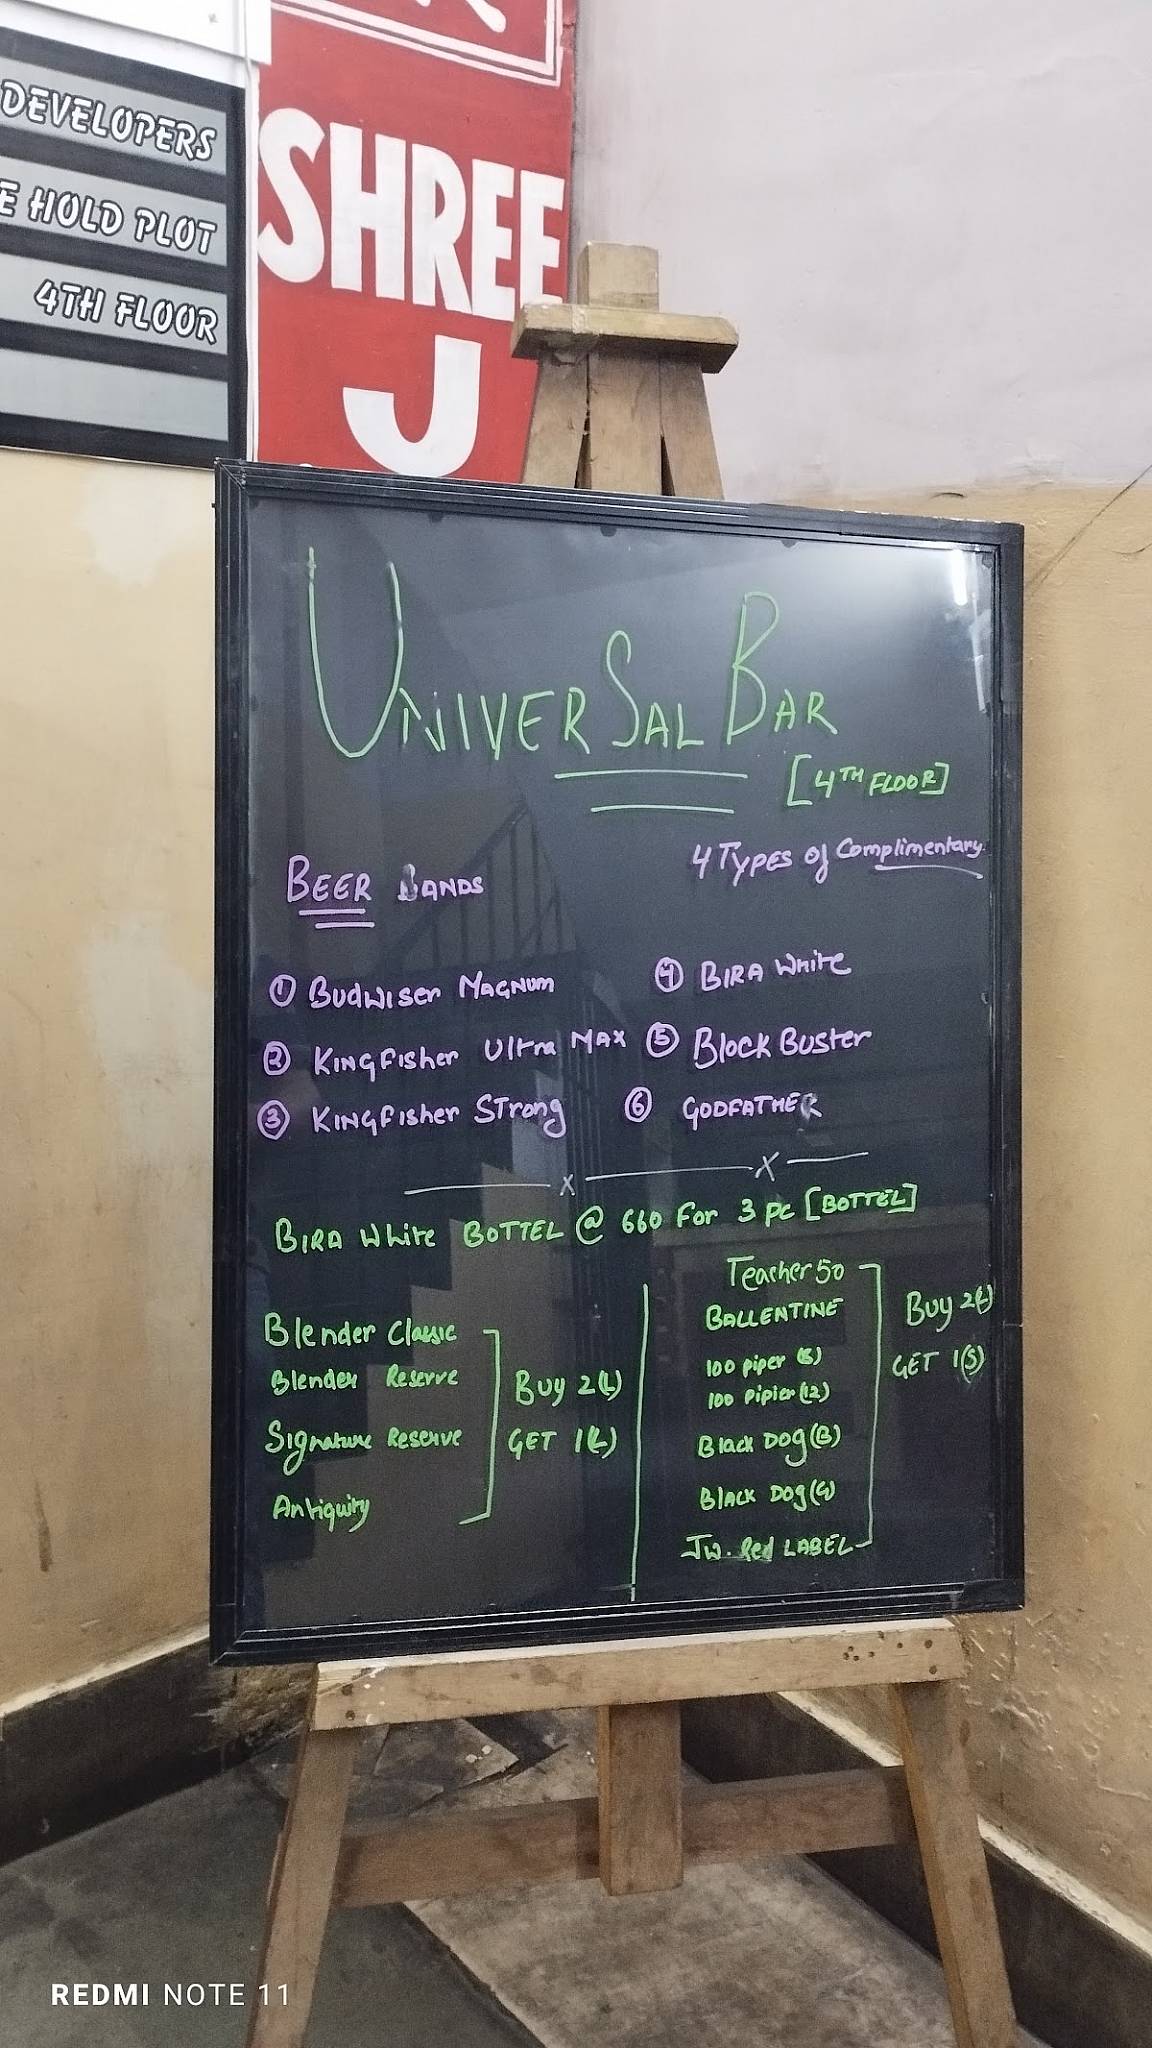 DEVELOPERS
E HOLD PLOT
4TH FLOOR
SHREE
J
UNIVERSAL BAR
[4TH FLOOR]
4 TYPES of Complimentary
BEER BANDS
① BUDWISER MAGNUM
② KINGFISHER ULTRA MAX
③ KINGFISHER STRONG
④ BIRA WHITE
⑤ BLOCK BUSTER
⑥ GODFATHER
BIRA White BOTTEL @ 660 For 3 Pc [BOTTEL]
Blender Classic
Blender Reserve
Signature Reserve
Antiquity
Buy 2(L)
GET 1(L)
Teacher 50
BALLENTINE
100 piper (8)
100 pipier (12)
Black Dog (B)
BLACK DOG (G)
JW. Red LABEL
Buy 2(L)
GET 1(S)
REDMI NOTE 11